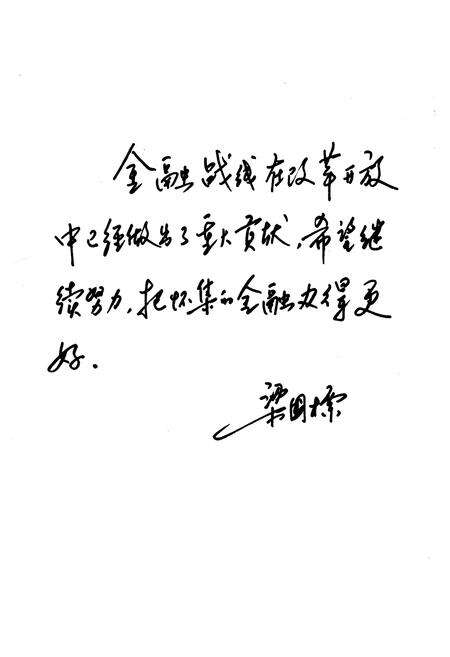 金融战线在改革开放
中已经做出了重大贡献,希望继
续努力,把怀集的金融办得更
好.
梁国标